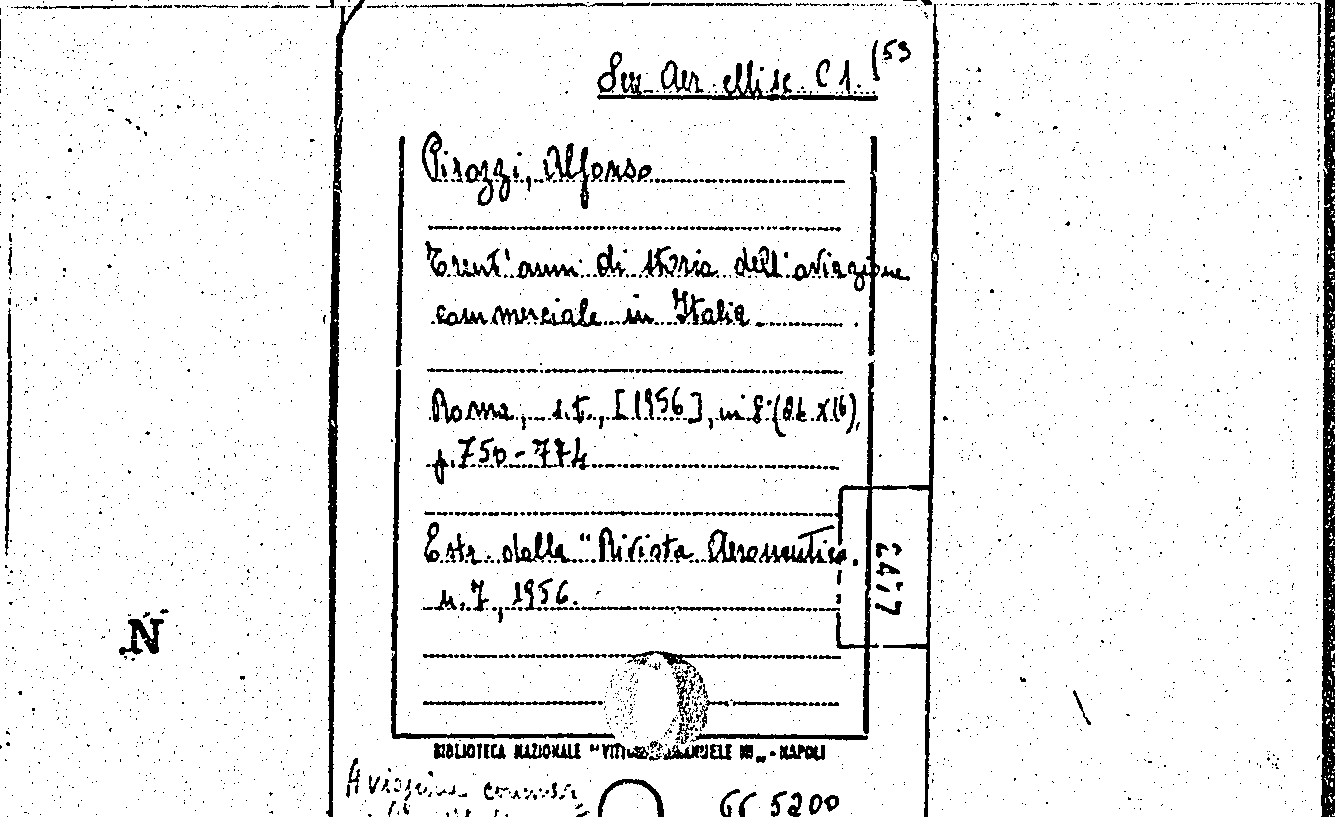 Sez. Aer. Misc. C 1. /53
Pirozzi, Alfonso
Trent'anni di storia dell'aviazione
commerciale in Italia.
Roma, s.t., [1956], in 8° (24 x 16),
p. 750-774
Estr. dalla "Rivista Aeronautica.
n. 7, 1956.
N
BIBLIOTECA NAZIONALE "VITTORIO EMANUELE III„ - NAPOLI
Aviazione commer
5200